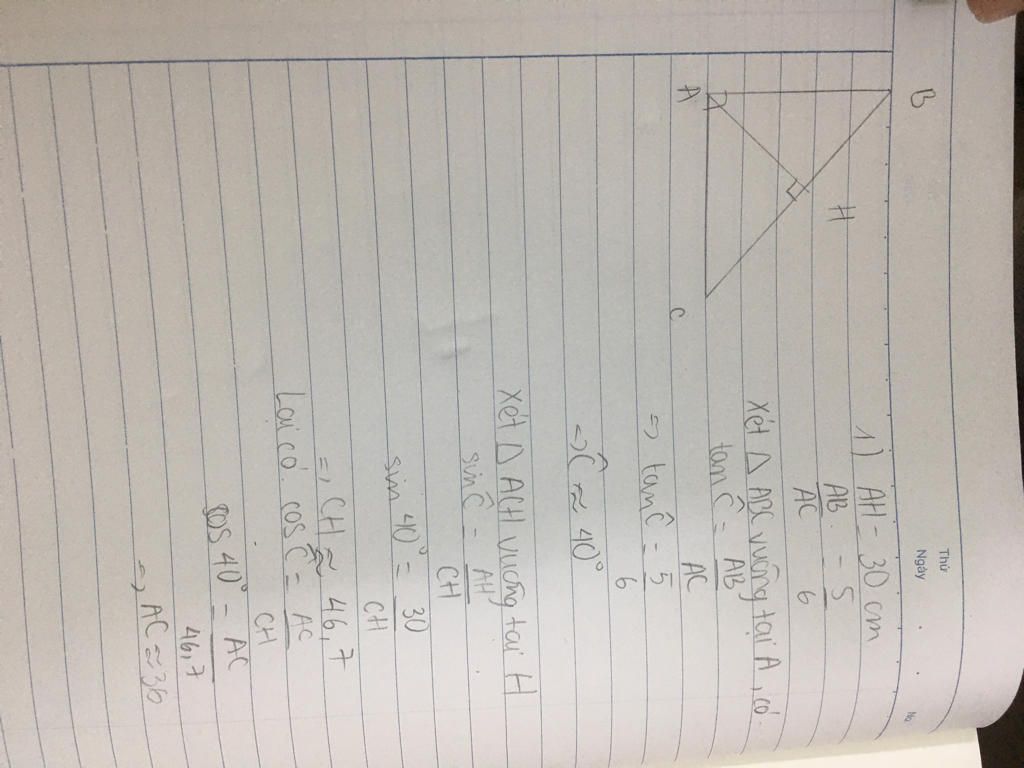 Thứ
Ngày
No.
B
A
H
C
1) AH = 30 cm
AB = 5
AC 6
Xét Δ ABC vuông tại A, có
tan Ĉ = AB
AC
=> tan Ĉ = 5
6
=> Ĉ ≈ 40°
Xét Δ ACH vuông tại H
sin Ĉ = AH
CH
sin 40° = 30
CH
=> CH ≈ 46,7
Lại có: cos Ĉ = AC
CH
cos 40° = AC
46,7
=> AC ≈ 36